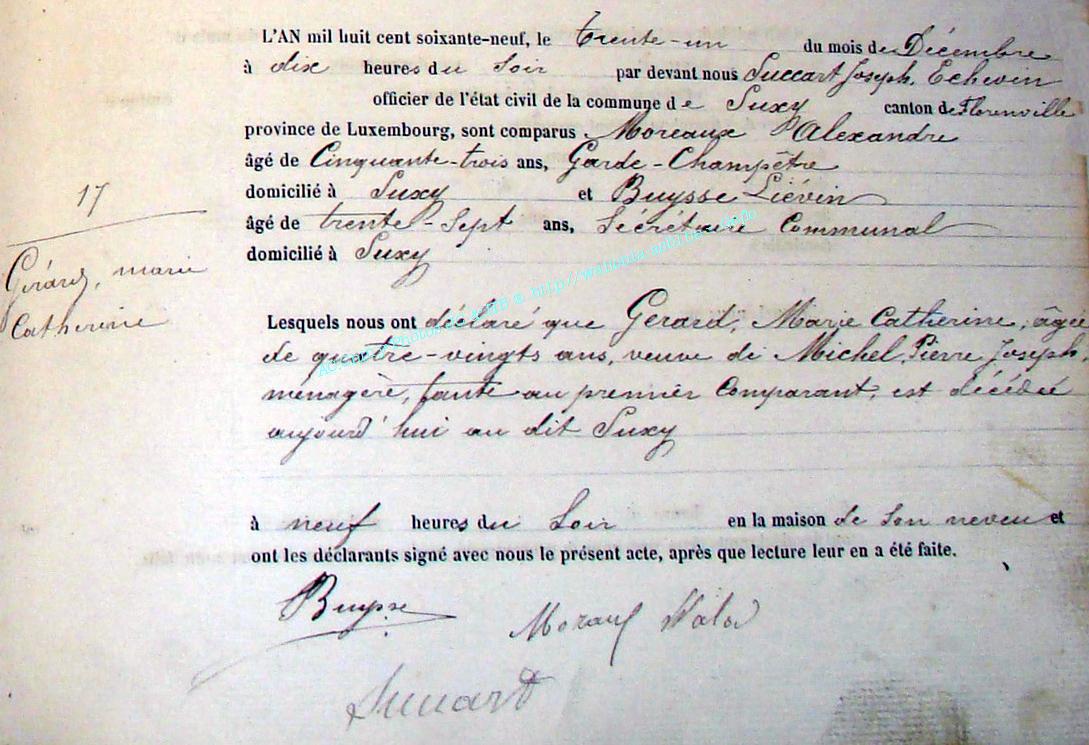 L'AN mil huit cent soixante-neuf, le trente-un du mois de Décembre
à dix heures du soir par devant nous Succart Joseph, Echevin
officier de l'état civil de la commune de Suxy canton de Florenville
province de Luxembourg, sont comparus Moreaux Alexandre
âgé de Cinquante-trois ans, Garde-Champêtre
domicilié à Suxy et Buysse Liévin
âgé de trente-Sept ans, Sécrétaire Communal
domicilié à Suxy
17
Gérard, marie
Catherine
Lesquels nous ont déclaré que Gerard, Marie Catherine, âgée
de quatre-vingts ans, veuve de Michel, Pierre Joseph,
ménagère, tante au premier Comparant, est décédée
aujourd'hui au dit Suxy
à neuf heures du Soir en la maison de son neveu et
ont les déclarants signé avec nous le présent acte, après que lecture leur en a été faite.
Buysse
Succart